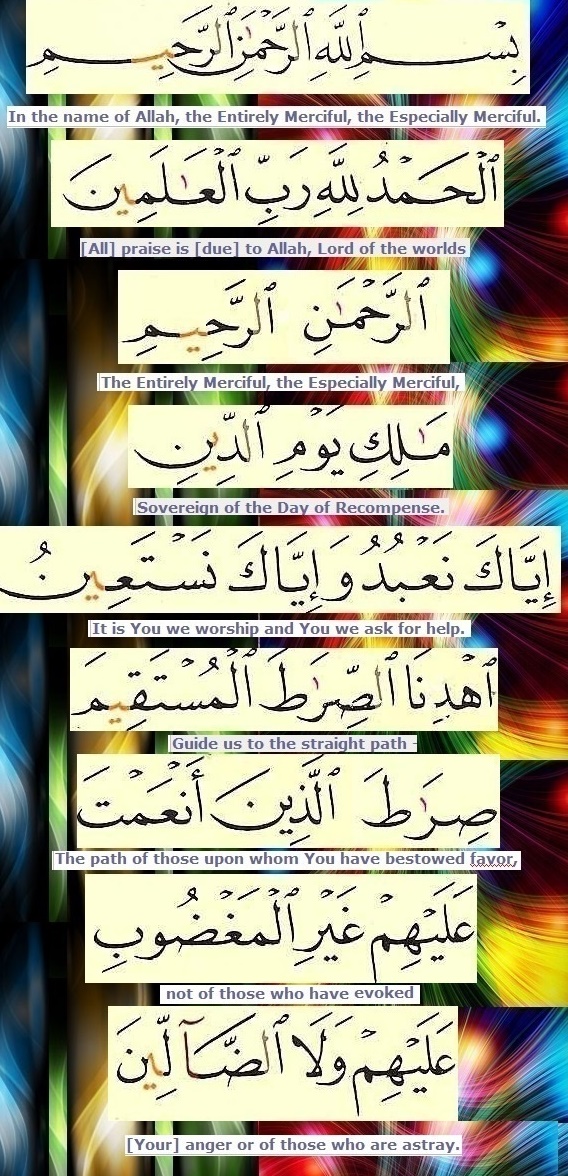 بِسْمِ ٱللَّهِ ٱلرَّحْمَٰنِ ٱلرَّحِيمِ
In the name of Allah, the Entirely Merciful, the Especially Merciful.
ٱلْحَمْدُ لِلَّهِ رَبِّ ٱلْعَٰلَمِينَ
[All] praise is [due] to Allah, Lord of the worlds
ٱلرَّحْمَٰنِ ٱلرَّحِيمِ
The Entirely Merciful, the Especially Merciful,
مَٰلِكِ يَوْمِ ٱلدِّينِ
Sovereign of the Day of Recompense.
إِيَّاكَ نَعْبُدُ وَ إِيَّاكَ نَسْتَعِينُ
It is You we worship and You we ask for help.
ٱهْدِنَا ٱلصِّرَٰطَ ٱلْمُسْتَقِيمَ
Guide us to the straight path -
صِرَٰطَ ٱلَّذِينَ أَنْعَمْتَ
The path of those upon whom You have bestowed favor,
عَلَيْهِمْ غَيْرِ ٱلْمَغْضُوبِ
not of those who have evoked
عَلَيْهِمْ وَلَا ٱلضَّآلِّينَ
[Your] anger or of those who are astray.